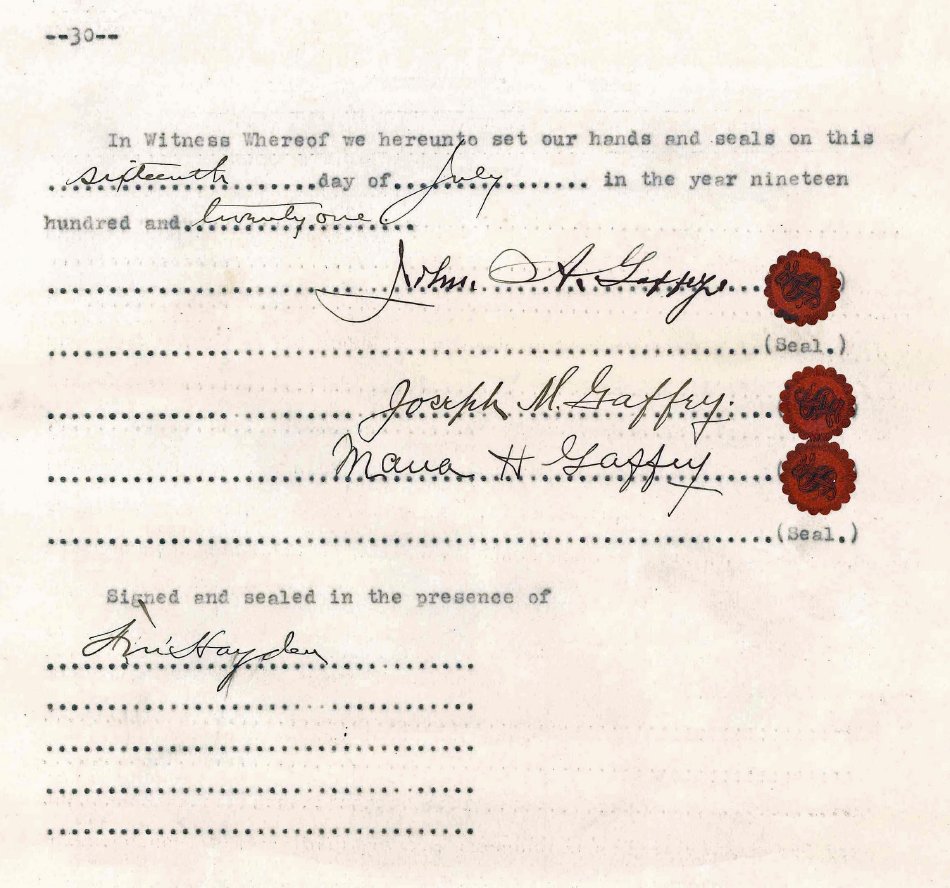 --30--
In Witness Whereof we hereunto set our hands and seals on this
sixteenth day of July in the year nineteen
hundred and twenty one.
John A. Gaffey )
(Seal.)
Joseph M. Gaffey.
Maria H Gaffey
(Seal.)
Signed and sealed in the presence of
Hayden